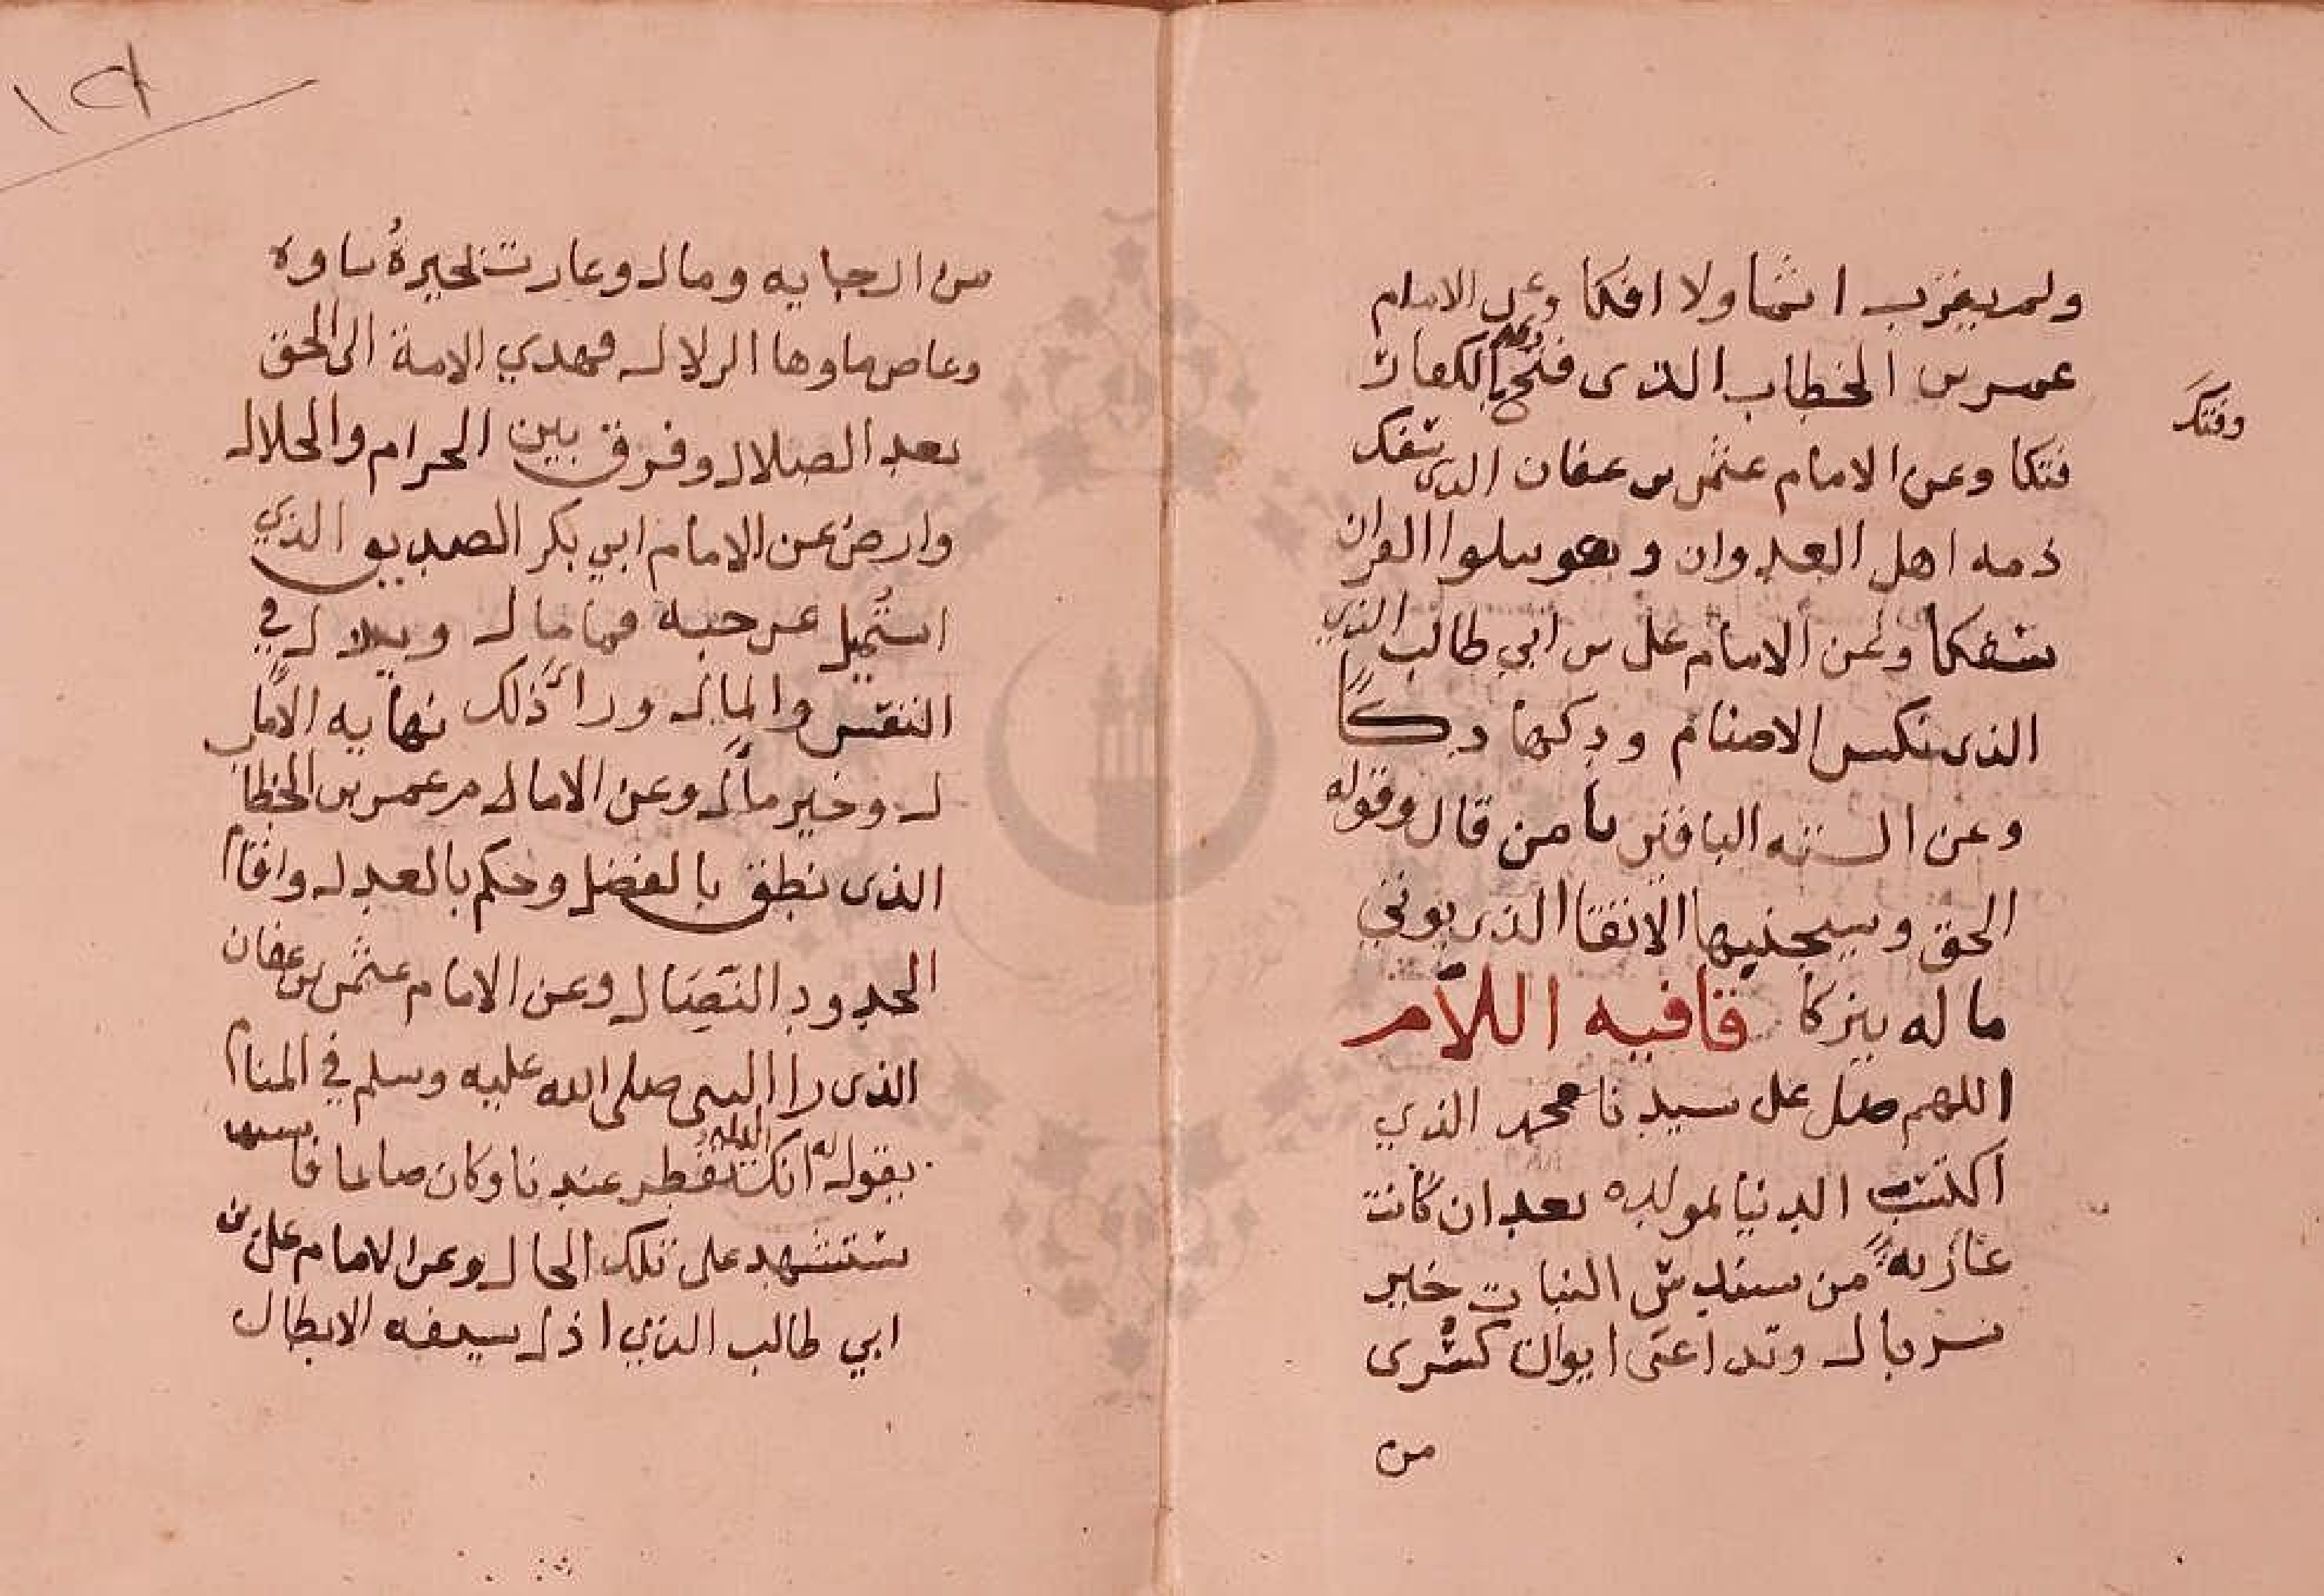 ولم يغرب اثما ولا افكا وعن الامام
عمر بن الخطاب الذى فتح الكفار
وفتك
فتكا وعن الامام عثمن بن عفان الذى سفك
دمه اهل العدوان وهو يتلوا القران
سفكا وعن الامام على بن ابي طالب الذي
الذى نكس الاصنام ودكها دكا
وعن الستة الباقين يا من قال وقوله
الحق وسيجنبها الاتقا الذى يوتي
ما له يتزكا قافيه اللام
اللهم صل على سيدنا محمد الذي
اكتست الدنيا بمولده بعد ان كانت
عاريه من سندس النبات خير
سربال وتداعى ايوان كسرى
من
١٢١
من الجابه ومال وغارت بحيرة ساوه
وغاص ماوها الزلال فهدي الامة الى الحق
بعد الضلال وفرق بين الحرام والحلال
وارض عن الامام ابي بكر الصديق الذي
استميل عن حبه فما مال وبذل في
النفس والمال ورا ذلك نهايه الامال
ل وخير مال وعن الامام عمر بن الخطاب
الذى نطق بالفضل وحكم بالعدل واقام
الحدود وعن الامام عثمن بن عفان
الذى را النبى صلى الله عليه وسلم في المنام
يقول له انك تفطر عندنا الليلة وكان صائما فا
ستشهد على تلك الحال وعن الامام على بن
ابي طالب الذي اذل بسيفه الابطال